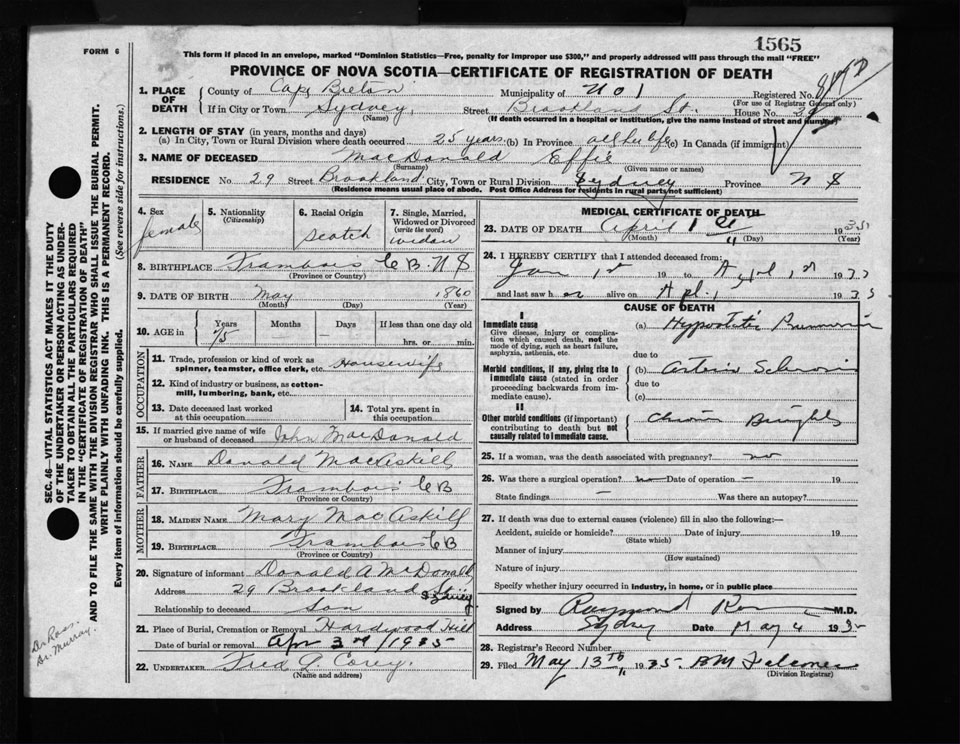 1565
FORM 6
This form if placed in an envelope, marked "Dominion Statistics—Free, penalty for improper use $300," and properly addressed will pass through the mail "FREE"
PROVINCE OF NOVA SCOTIA—CERTIFICATE OF REGISTRATION OF DEATH
1. PLACE OF DEATH County of Cape Breton Municipality of No 1 Registered No.
(For use of Registrar General only)
If in City or Town Sydney, Street Brookland St. House No.
(Name) (If death occurred in a hospital or institution, give the name instead of street and number)
2. LENGTH OF STAY (in years, months and days)
(a) In City, Town or Rural Division where death occurred 25 years (b) In Province all her life (c) In Canada (if immigrant)
3. NAME OF DECEASED MacDonald Effie
(Surname) (Given name or names)
RESIDENCE No 29 Street Brookland City, Town or Rural Division Sydney Province N S
(Residence means usual place of abode. Post Office Address for residents in rural parts not sufficient)
4. Sex female
5. Nationality (Citizenship)
6. Racial Origin Scotch
7. Single, Married, Widowed or Divorced (write the word) widow
8. BIRTHPLACE Framboise C B. N S
(Province or Country)
9. DATE OF BIRTH May 1860
(Month) (Day) (Year)
10. AGE in Years 75 Months Days If less than one day old
hrs. or min.
OCCUPATION
11. Trade, profession or kind of work as spinner, teamster, office clerk, etc. Housewife
12. Kind of industry or business, as cotton-mill, lumbering, bank, etc.
13. Date deceased last worked at this occupation
14. Total yrs. spent in this occupation
15. If married give name of wife or husband of deceased John MacDonald
FATHER
16. NAME Donald MacAskill
17. BIRTHPLACE Frambois C B
(Province or Country)
MOTHER
18. MAIDEN NAME Mary MacAskill
19. BIRTHPLACE Frambois C B
(Province or Country)
20. Signature of informant Donald A McDonald
Address 29 Brookland St. Sydney
Relationship to deceased Son
21. Place of Burial, Cremation or Removal Hardwood Hill
Date of burial or removal Apr 3rd 1935
22. UNDERTAKER Fred L Corey.
(Name and address)
MEDICAL CERTIFICATE OF DEATH
23. DATE OF DEATH April 1 1935
(Month) (Day) (Year)
24. I HEREBY CERTIFY that I attended deceased from:
Jan 1st 19 to April 1st 1935
and last saw her alive on Apl. 1 1935
CAUSE OF DEATH
I
Immediate cause
Give disease, injury or complication which caused death, not the mode of dying, such as heart failure, asphyxia, asthenia, etc.
(a) Hypostatic Pneumonia
due to
Morbid conditions, if any, giving rise to immediate cause (stated in order proceeding backwards from immediate cause)
(b) Arterio Sclerosis
due to
(c)
II
Other morbid conditions (if important) contributing to death but not causally related to immediate cause.
Chronic Brights
25. If a woman, was the death associated with pregnancy? no
26. Was there a surgical operation? no Date of operation – 19
State findings – Was there an autopsy?
27. If death was due to external causes (violence) fill in also the following:—
Accident, suicide or homicide? Date of injury 19
(State which)
Manner of injury
(How sustained)
Nature of injury
Specify whether injury occurred in industry, in home, or in public place
Signed by Raymond M.D.
Address Sydney Date May 4 1935
28. Registrar's Record Number
29. Filed May 13th 1935. B M Falconer
(Division Registrar)
SEC. 46—VITAL STATISTICS ACT MAKES IT THE DUTY
OF THE UNDERTAKER OR PERSON ACTING AS UNDERTAKER TO OBTAIN ALL THE PARTICULARS REQUIRED
IN THE "CERTIFICATE OF REGISTRATION OF DEATH"
AND TO FILE THE SAME WITH THE DIVISION REGISTRAR WHO SHALL ISSUE THE BURIAL PERMIT.
WRITE PLAINLY WITH UNFADING INK. THIS IS A PERMANENT RECORD.
Every item of information should be carefully supplied. (See reverse side for instructions.)
Dr Ross.
Dr. Murray.